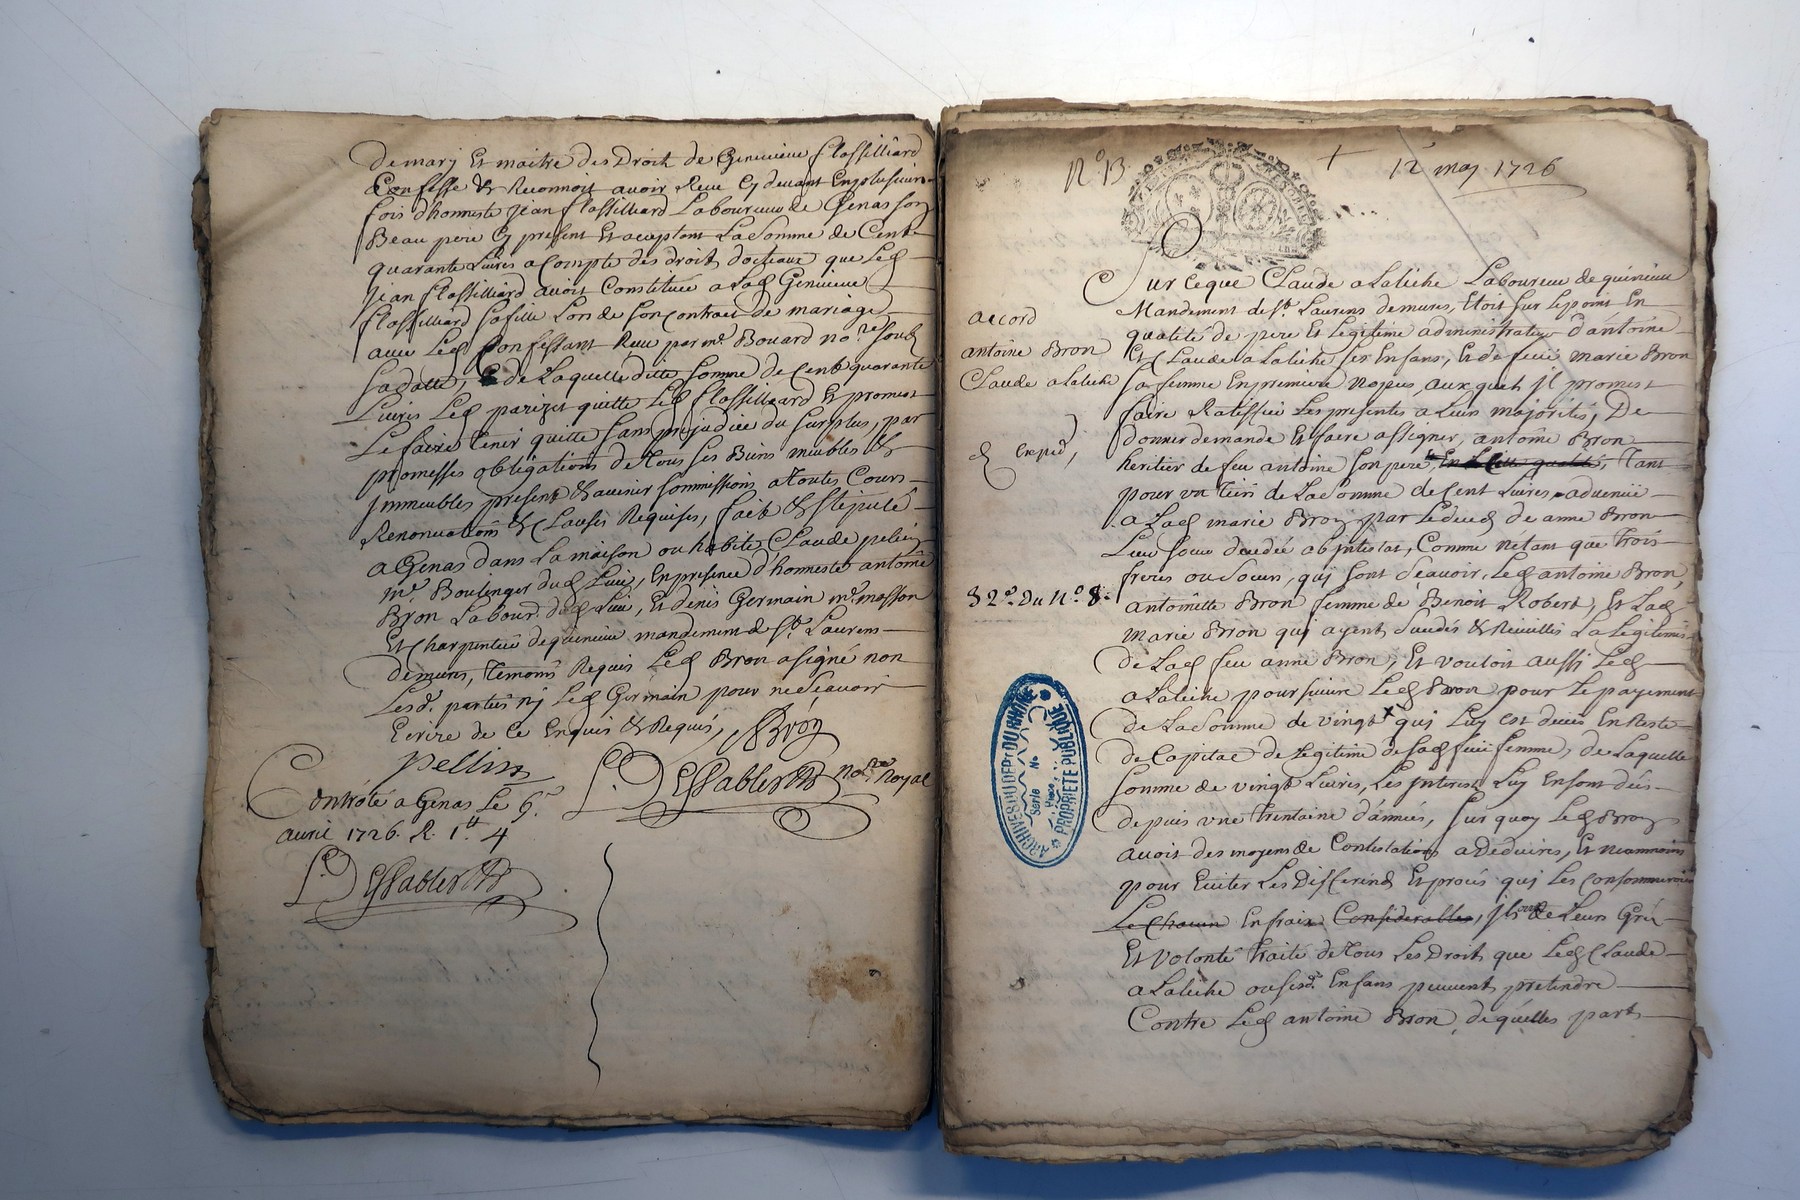 de marj Et maitre des Droit de Genevieve flassilliard
Confesse & Reconnoit avoir Reçu Cy devant En plusieurs
fois d'honneste jean flassilliard Laboureur de Genas son
Beau pere Cy present Et aceptant La Somme de Cent
quarante Livres a Compte des droit dotaux que Led
jean flassilliard avoit Constitués a Lad Genevieve
flassilliard sa fille Lors de son Contract de mariage
avec Led Confessant Reçu par me Bouard nore soub
sa datte, de Laquelle ditte somme de Cent quarante
Livres Led parizet quitte Led flassilliard Et promet
Le faire tenir quitte sans prejudice du surplus, par
promesses obligations de tous ses Biens meubles &
jmmeubles present & avenir sommissions a toutes Cours
Renonciations & Clauses Requises, fait & stipulé
a Genas dans La maison ou habite Claude pelin
me Boulenger dud Lieu, En presence d'honneste antoine
Bron Labour. dud Lieu, Et denis Germain me masson
Et Charpentier de quenieu mandement de St. Laurens
demures, temoins Requis Led Bron a signé non
Lesd. parties nj Led Germain pour ne sçavoir
Ecrire de Ce Enquis & Requis, ABrón
pellin
DESSablerRR Nore Royal
Controlé a Genas Le 9e
avril 1726. R. 1tt 4
DESSablerRR
No 13. + 12 may 1726
Sur Ceque Claude a Laliche Laboureur de quenieu
Mandement de St. Laurens demures, Etoit sur Le point En
accord
qualité de pere Et Legitime administrateur d'antoine
antoine Bron
Et Claude a Laliche ses Enfans, Et de feüe marie Bron
Claude a Laliche
sa femme En premiere nopces, auxquels jl promet
faire Ratiffier Les presentes a Leur majorité, De
donner demande Et faire assigner, antoine Bron
d exped,
heritier de feu antoine son pere, En Cette qualité, tant
pour un tiers de La Somme de Cent Livres advenüe
a Lad marie Bron par Le deced de anne Bron
Leur soeur decedée abjntestat, Comme netant que trois
freres ou soeurs, quj sont Sçavoir, Led antoine Bron,
52o. Du No. 8.
antoinette Bron femme de Benoit Robert, Et Lad
marie Bron quj ayent Succedés & Recüeillis La Legitime
de Lad feu anne Bron, Et vouloit aussi Led
a Laliche poursuivre Led Bron pour Le payement
de La Somme de vingt x quj Luy est deües En Reste
de Capital de Legitime de Lad feüe femme, de Laquelle
somme de vingt Livres, Les jnterest Luy En sont dües
depuis une trentaine d'années, sur quoy Led Bron
avoit des moyens de Contestations a Deduires, Et neanmoins
pour Eviter Les Differends Et procés quj Les Consommeroient
Le Chacun En frais Considerables, jls ont de Leurs Gré
Et volonté traité de tous Les Droit que Led Claude
a Laliche ou sesd. Enfans peuvent pretendre
Contre Led antoine Bron, dequelles part
ARCHIVES DU DEPT DU RHONE
Série No
PROPRIÉTÉ PUBLIQUE